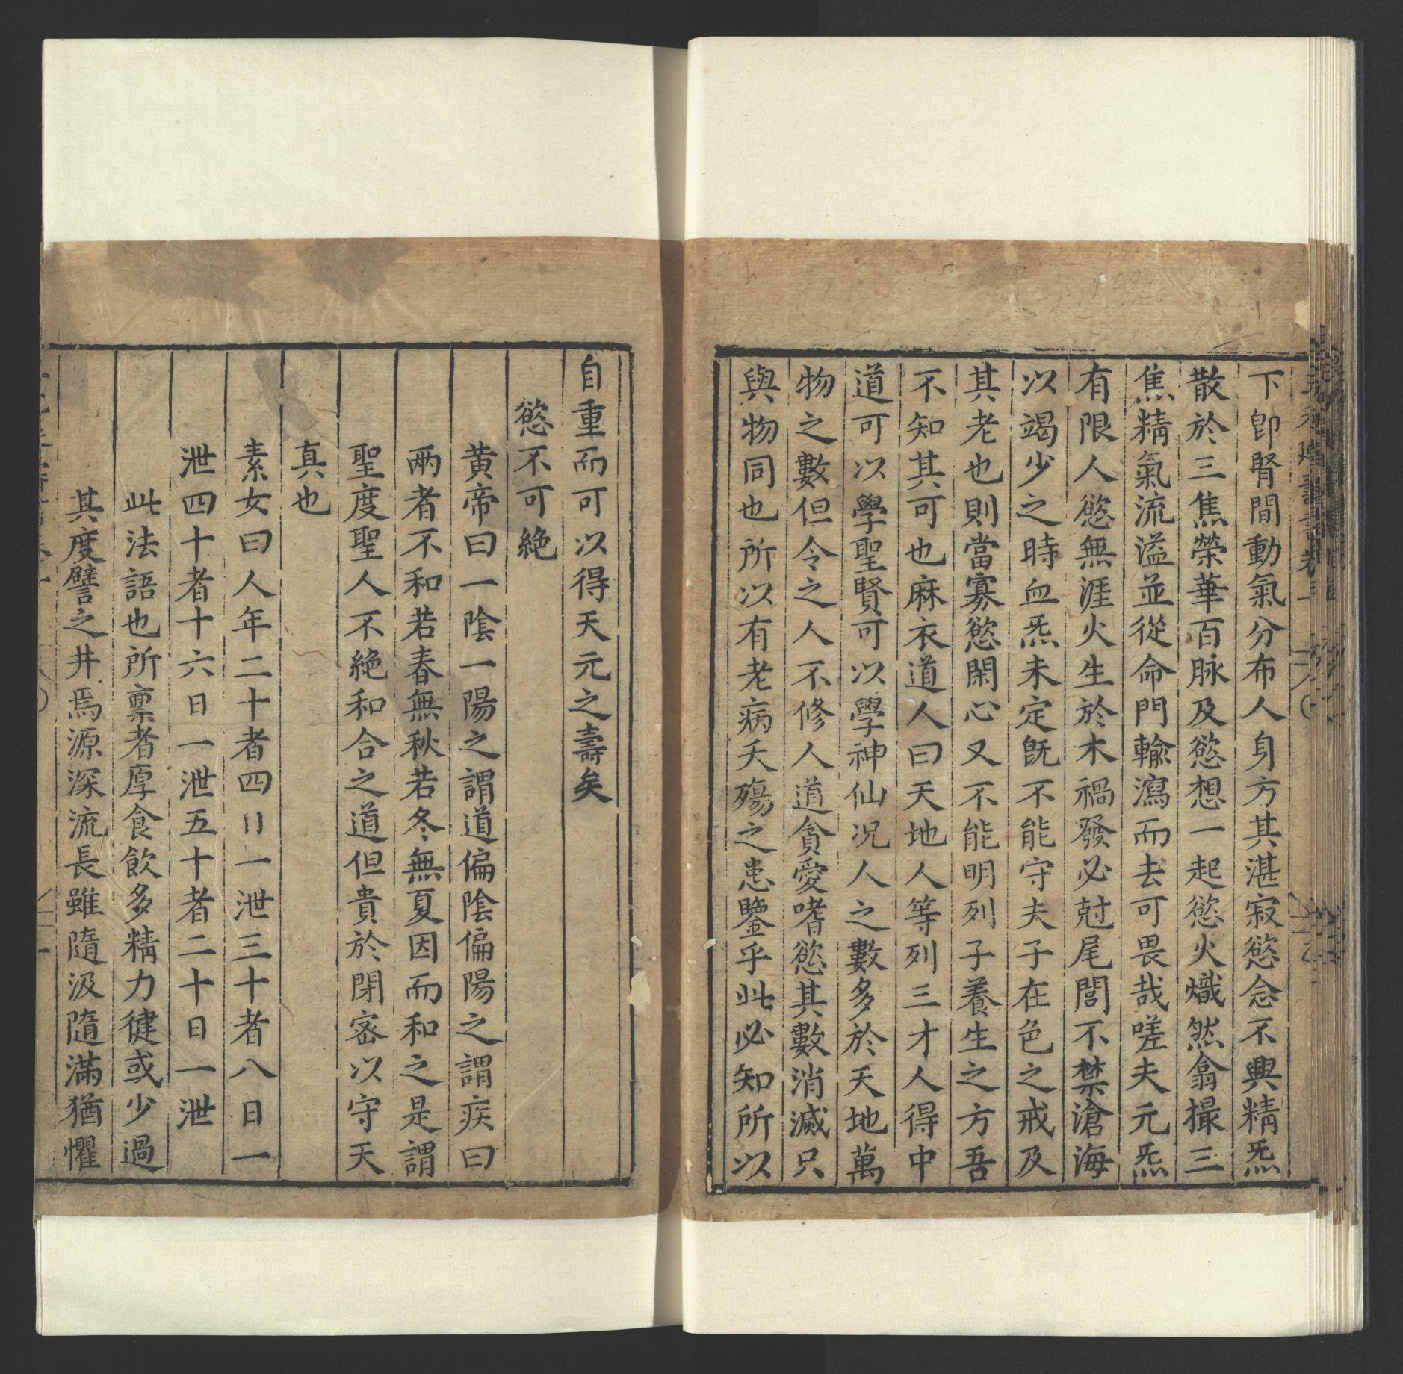 下卽腎間動氣分布人身方其湛寂慾念不興精炁
散於三焦榮華百脉及慾想一起慾火熾然翕撮三
焦精氣流溢並從命門輸瀉而去可畏哉嗟夫元炁
有限人慾無涯火生於木禍發必尅尾閭不禁滄海
以竭少之時血炁未定旣不能守夫子在色之戒及
其老也則當寡慾閑心又不能明列子養生之方吾
不知其可也麻衣道人曰天地人等列三才人得中
道可以學聖賢可以學神仙况人之數多於天地萬
物之數但令之人不修人道貪愛嗜慾其數消滅只
與物同也所以有老病夭殤之患鑒乎此必知所以
自重而可以得天元之壽矣
慾不可絶
黄帝曰一陰一陽之謂道偏陰偏陽之謂疾曰
兩者不和若春無秋若冬無夏因而和之是謂
聖度聖人不絶和合之道但貴於閉宻以守天
真也
素女曰人年二十者四日一泄三十者八日一
泄四十者十六日一泄五十者二十日一泄
此法語也所禀者厚食飲多精力健或少過
其度譬之井焉源深流長雖隨汲隨滿猶懼